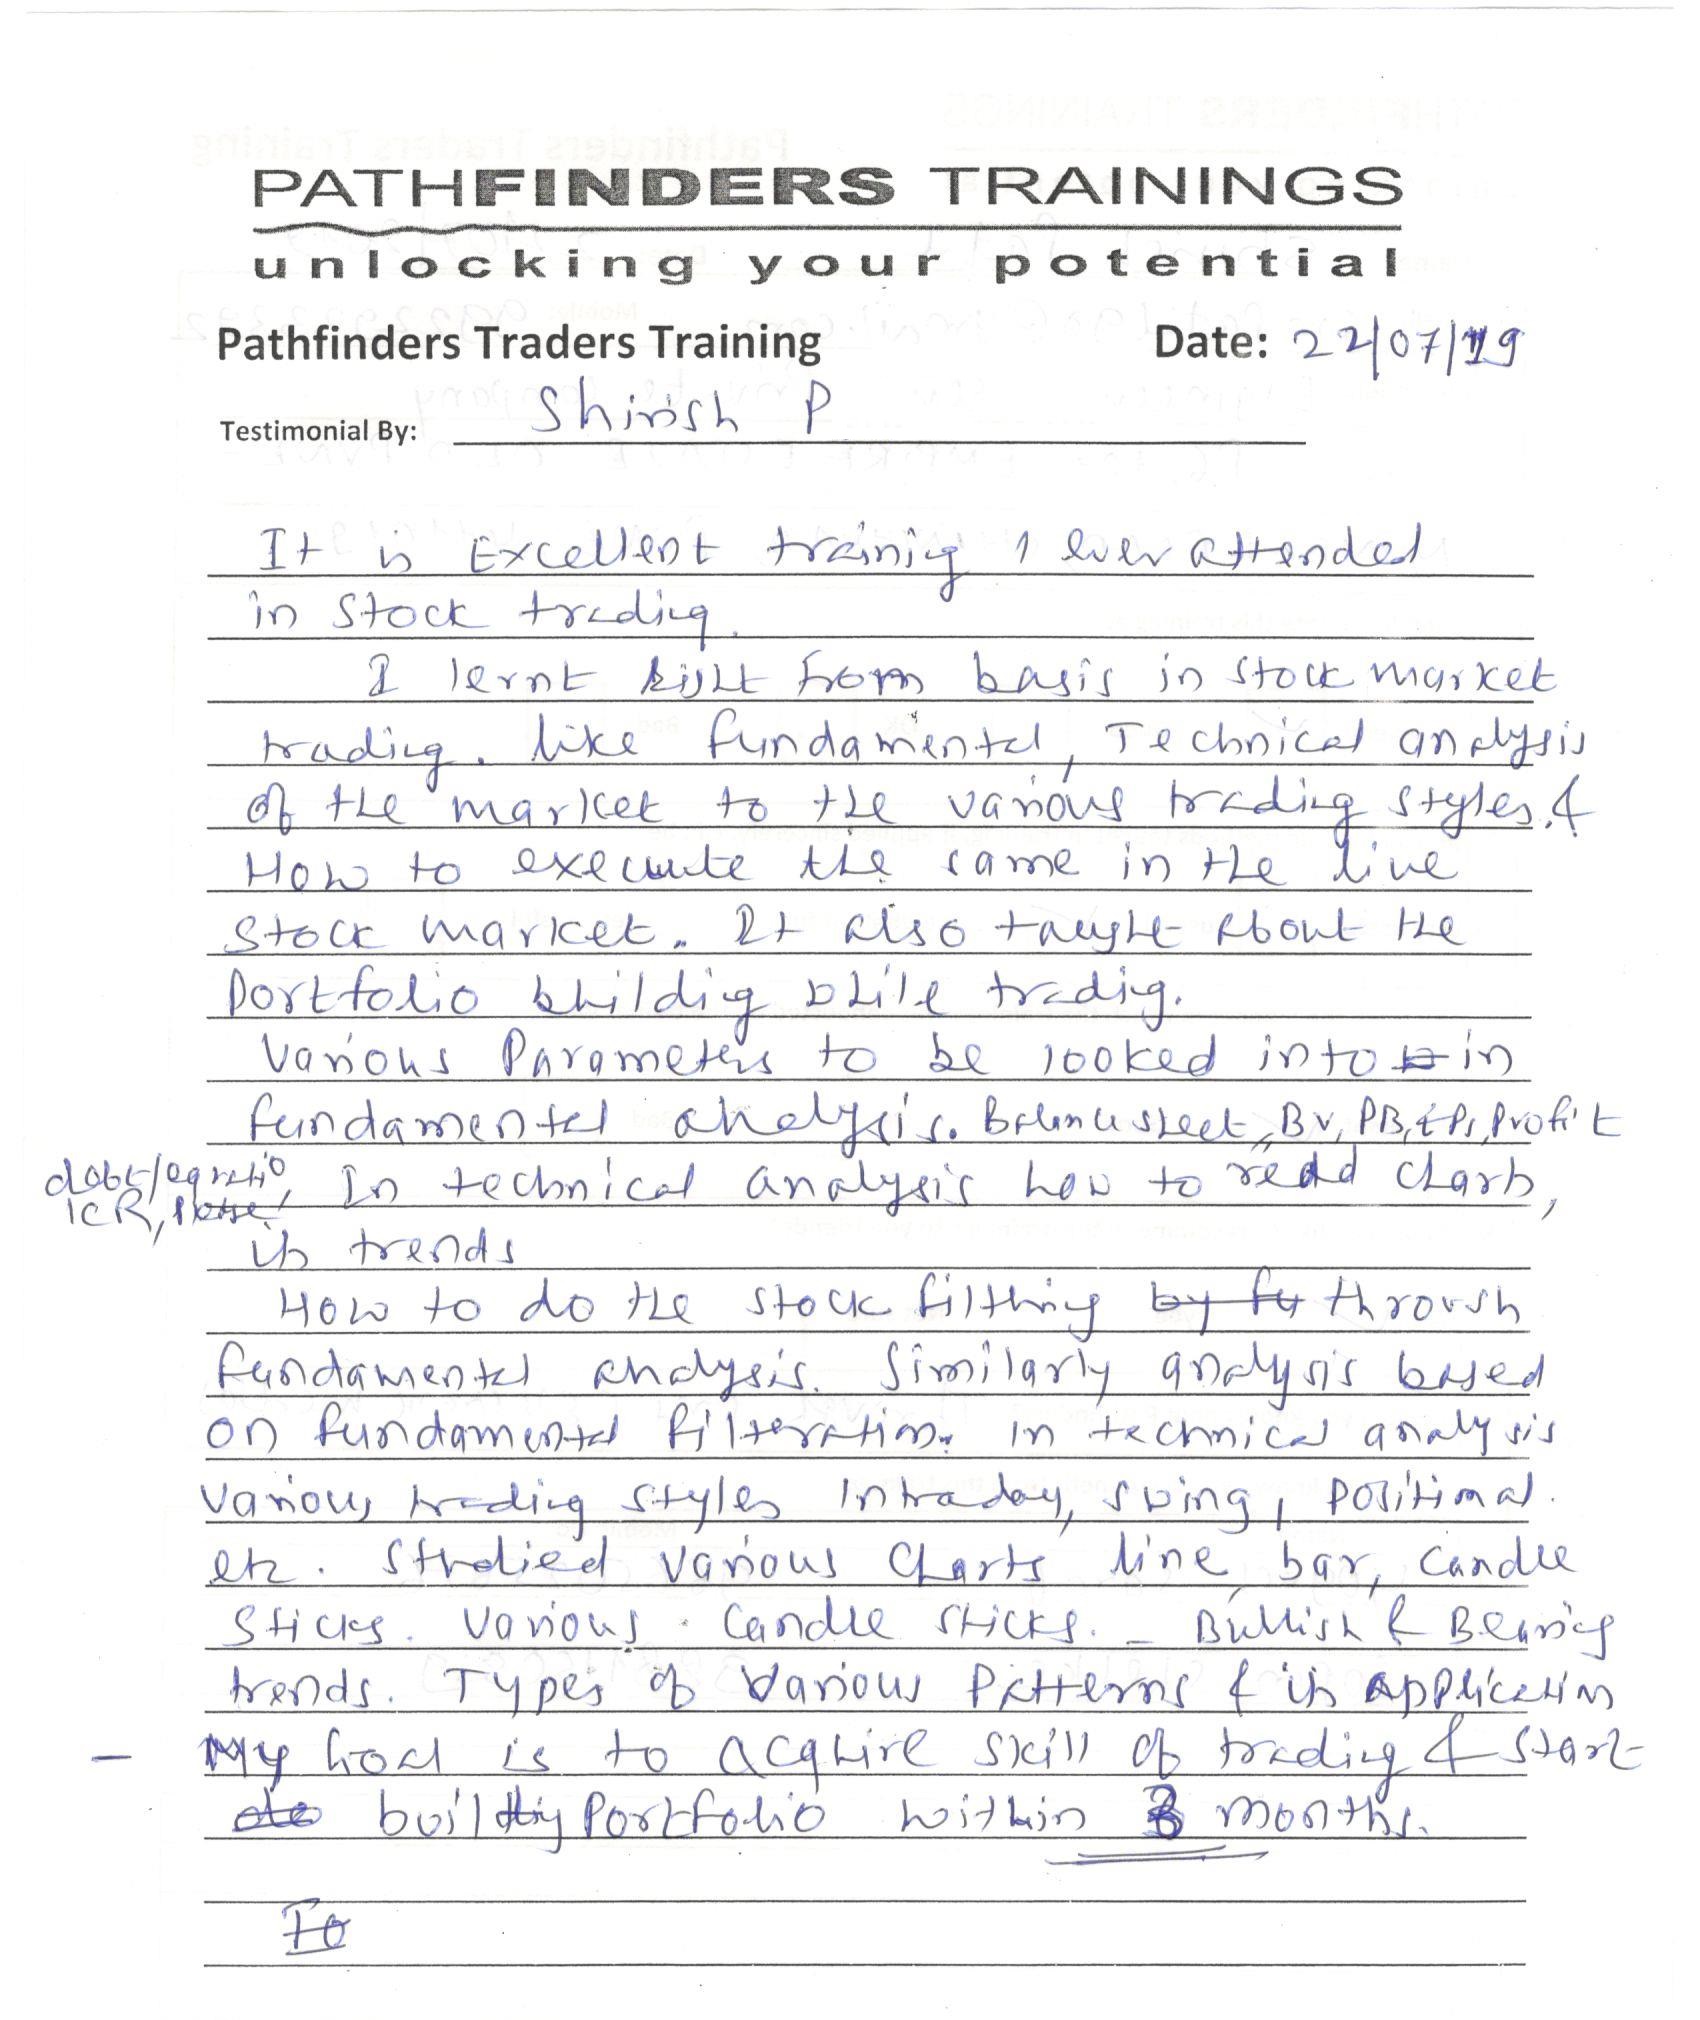 PATHFINDERS TRAININGS
unlocking your potential
Pathfinders Traders Training Date: 22/07/19
Testimonial By: Shirish P
It is Excellent trainig I ever attended
in stock trading.
I lernt right from basis in stock market
trading. like fundamental, Technical analysis
of the market to the various trading styles. &
How to execute the same in the live
stock market. It also taught about the
Portfolio building while trading.
Various Parameters to be looked into in
fundamental analysis. Balance sheet, BV, PB, EPS, Profit
debt/eq ratio, In technical analysis how to read charts,
ICR,
its trends
How to do the stock filtring by fu through
fundamental analysis. Similarly analysis based
on fundamental filteration. In technical analysis
various trading styles Intraday, swing, positional.
etc. Studied various charts line, bar, candle
sticks. Various candle sticks. - Bullish & Bearing
trends. Types of various Patterns & its application
- My Goal is to acquire skill of trading & start
building Portfolio within 3 months.
To